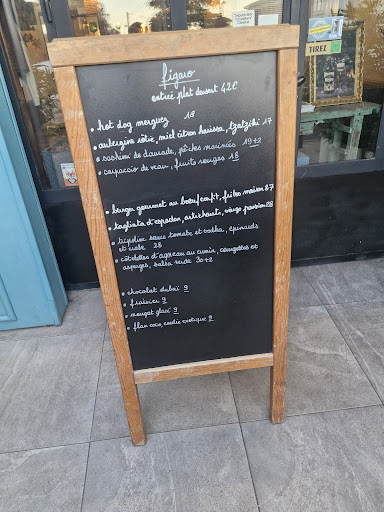 figaro
entrée plat dessert 42€
• hot dog merguez 18
• aubergine rôtie, miel citron harissa, tzatziki 17
• sashimi de daurade, pêches marinées 19+2
• carpaccio de veau, fruits rouges 18
• burger gourmet au boeuf confit, frites maison 27
• tagliata d'espadon, artichauts, vierge passion 28
• tripoline sauce tomate et tosha, épinards
et crabe 28
• côtelettes d'agneau au cumin, courgettes et
asperges, salsa verde 30+2
• chocolat dubaï 9
• fraisier 9
• nougat glacé 9
• flan coco, coulis exotique 9
TIREZ